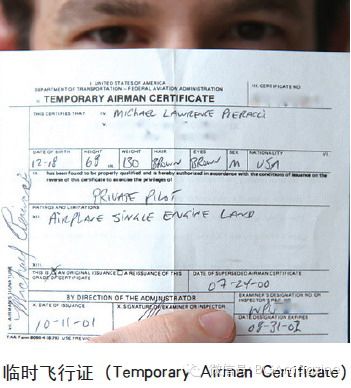 I. UNITED STATES OF AMERICA
DEPARTMENT OF TRANSPORTATION - FEDERAL AVIATION ADMINISTRATION
III. CERTIFICATE NO.
II. TEMPORARY AIRMAN CERTIFICATE
THIS CERTIFIES THAT IV. MICHAEL LAWRENCE PIERACCI
V.
DATE OF BIRTH HEIGHT WEIGHT HAIR EYES SEX NATIONALITY VI.
12-18 68 IN. 130 BROWN BROWN M USA
IX. has been found to be properly qualified and is hereby authorized in accordance with the conditions of issuance on the
reverse of this certificate to exercise the privileges of
PRIVATE PILOT
RATINGS AND LIMITATIONS
XII. AIRPLANE SINGLE ENGINE LAND
XIII.
THIS IS AN ORIGINAL ISSUANCE A REISSUANCE OF THIS
GRADE OF CERTIFICATE
DATE OF SUPERSEDED AIRMAN CERTIFICATE
07-24-00
BY DIRECTION OF THE ADMINISTRATOR
EXAMINER'S DESIGNATION NO. OR
INSPECTOR'S REG. NO.
X. DATE OF ISSUANCE
X. SIGNATURE OF EXAMINER OR INSPECTOR
10-11-01
DESIGNATION EXPIRES
08-31-02
FAA Form 8060-4
VII. AIRMAN'S SIGNATURE
Michael Pieracci
临时飞行证 (Temporary Airman Certificate)